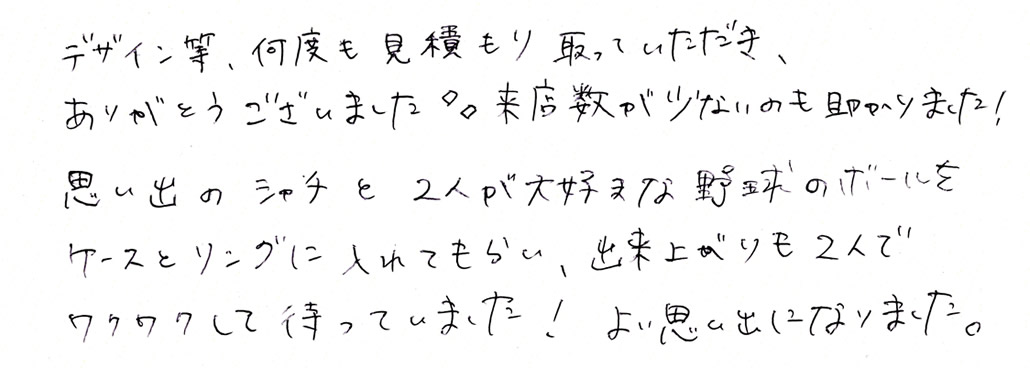 デザイン等、何度も見積もり取っていただき、
ありがとうございました。来店数が少ないのも助かりました！
思い出のシャチと2人が大好きな野球のボールを
ケースとリングに入れてもらい、出来上がりも2人で
ワクワクして待っていました！よい思い出になりました。